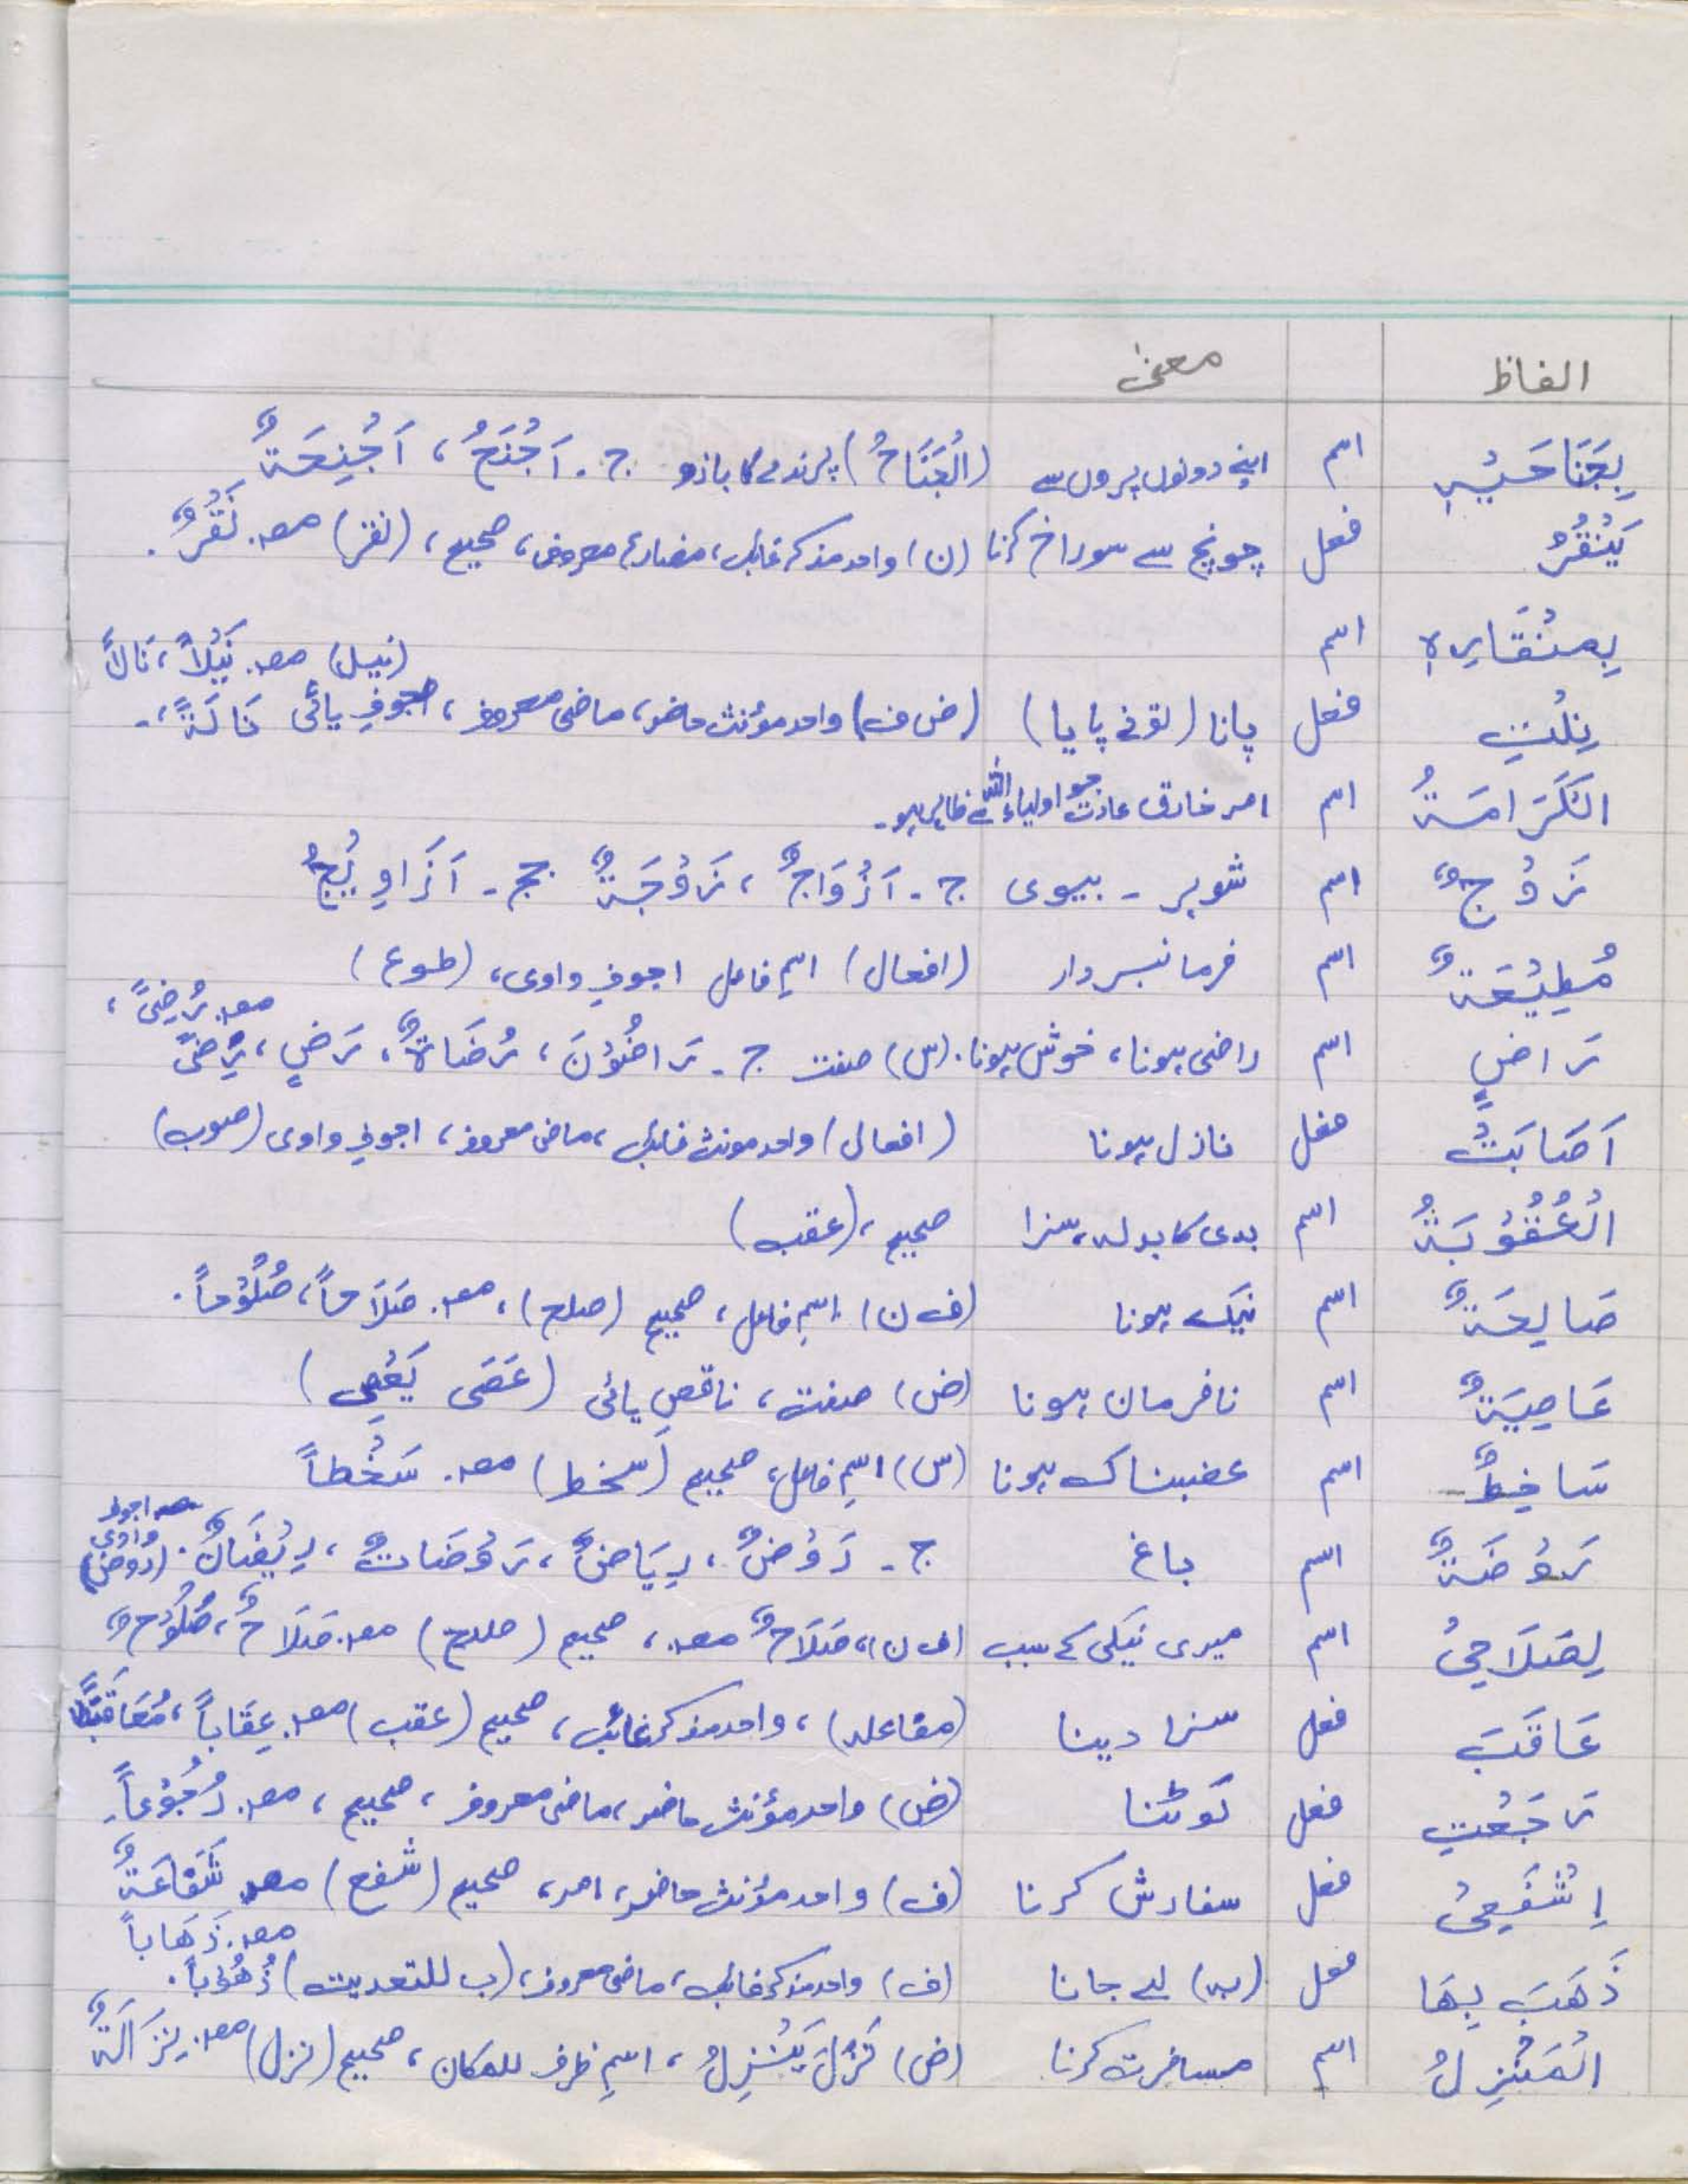 الفاظ معنیٰ
بِجَنَاحَیْہِ اسم اپنے دونوں پروں سے (الْجَنَاحُ) پرندے کا بازو ج۔ اَجْنُحٌ، اَجْنِحَۃٌ
یَنْقُرُ فعل چونچ سے سوراخ کرنا (ن) واحد مذکر غائب، مضارع معروف، صحیح، (نقر) مصد۔ نَقْرٌ۔
بِمِنْقَارِہٖ اسم
(نیل) مصد۔ نَیْلاً، نَالاً
نِلْتِ فعل پانا (تونے پایا) (ض ف) واحد مؤنث حاضر، ماضی معروف، اجوفِ یائی نَالَۃً،۔
الْکَرَامَۃُ اسم امر خارق عادت جو اولیاء اللہ سے ظاہر ہو۔
زَوْجٌ اسم شوہر ۔ بیوی ج۔ اَزْوَاجٌ، زَوْجَۃٌ جج۔ اَزَاوِیْجُ
مُطِیْعَۃٌ اسم فرمانبردار (افعال) اسمِ فاعل اجوفِ واوی، (طوع)
مصد۔ رُضِیً،
رَاضٍ اسم راضی ہونا، خوش ہونا۔ (س) صفت ج۔ رَاضُوْنَ، رُضَاۃٌ، رَضٍ، رِضیً
اَصَابَتْ فعل نازل ہونا (افعال) واحد مونث غائب، ماضی معروف، اجوفِ واوی (صوب)
الْعُقُوْبَۃُ اسم بدی کا بدلہ، سزا صحیح، (عقب)
صَالِحَۃٌ اسم نیک ہونا (ف ن) اسمِ فاعل، صحیح (صلح)، مصد۔ صَلَاحاً، صُلُوْحاً۔
عَاصِیَۃٌ اسم نافرمان ہونا (ض) صفت، ناقصِ یائی (عَصَی یَعْصِی)
سَاخِطٌ اسم غضبناک ہونا (س) اسمِ فاعل، صحیح (سخط) مصد۔ سَخْطاً
اجوفِ واوی
رَوْضَۃٌ اسم باغ ج۔ رَوْضٌ، رِیَاضٌ، رَوْضَاتٌ، رِیْضَانٌ۔ (روض)
لِصَلَاحِیْ اسم میری نیکی کے سبب (ف ن)، صَلَاحٌ مصد۔، صحیح (صلح) مصد۔ صَلَاحٌ، صُلُوْحٌ
عَاقَبَ فعل سزا دینا (مفاعلہ)، واحد مذکر غائب، صحیح (عقب) مصد۔ عِقَاباً، مُعَاقَبَۃً
رَجَعْتِ فعل لَوٹنا (ض) واحد مؤنث حاضر، ماضی معروف، صحیح، مصد۔ رُجُوْعاً۔
اِشْفَعِیْ فعل سفارش کرنا (ف) واحد مؤنث حاضر، امر، صحیح (شفع) مصد۔ شَفَاعَۃٌ
مصد۔ ذَھَاباً
ذَھَبَ بِھَا فعل (بہ) لے جانا (ف) واحد مذکر غائب، ماضی معروف، (ب للتعدیت) ذُھُوْباً۔
الْمَنْزِلُ اسم مسافرت کرنا (ض) نَزَلَ یَنْزِلُ، اسمِ ظرف للمکان، صحیح (نزل) مصد۔ نِزَالَۃٌ